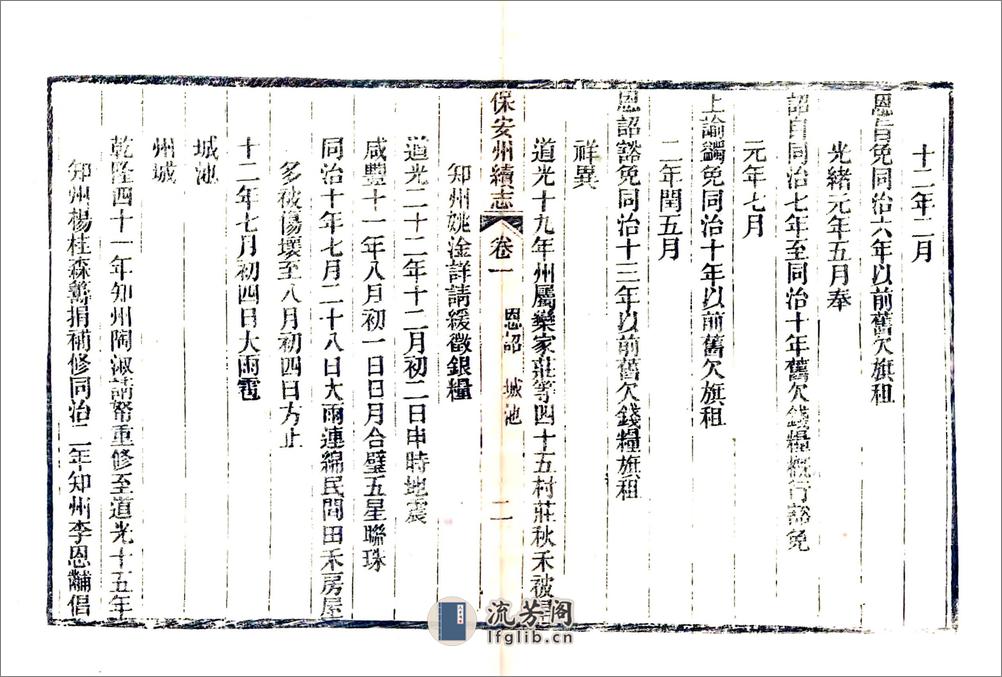 十二年二月
恩旨免同治六年以前舊欠旗租
光緒元年五月奉
詔自同治七年至同治十年舊欠錢糧概行豁免
元年七月
上諭蠲免同治十年以前舊欠旗租
二年閏五月
恩詔豁免同治十三年以前舊欠錢糧旗租
祥異
道光十九年州屬欒家莊等四十五村莊秋禾被
保安州續志 卷一 恩詔 城池 二
知州姚淦詳請緩徵銀糧
道光二十二年十二月初二日申時地震
咸豐十一年八月初一日日月合璧五星聯珠
同治十年七月二十八日大雨連綿民間田禾房屋
多被傷壞至八月初四日方止
十二年七月初四日大雨雹
城池
州城
乾隆四十一年知州陶淑請帑重修至道光十五年
知州楊桂森籌捐補修同治二年知州李恩黼倡
流芳阁
lfglib.cn